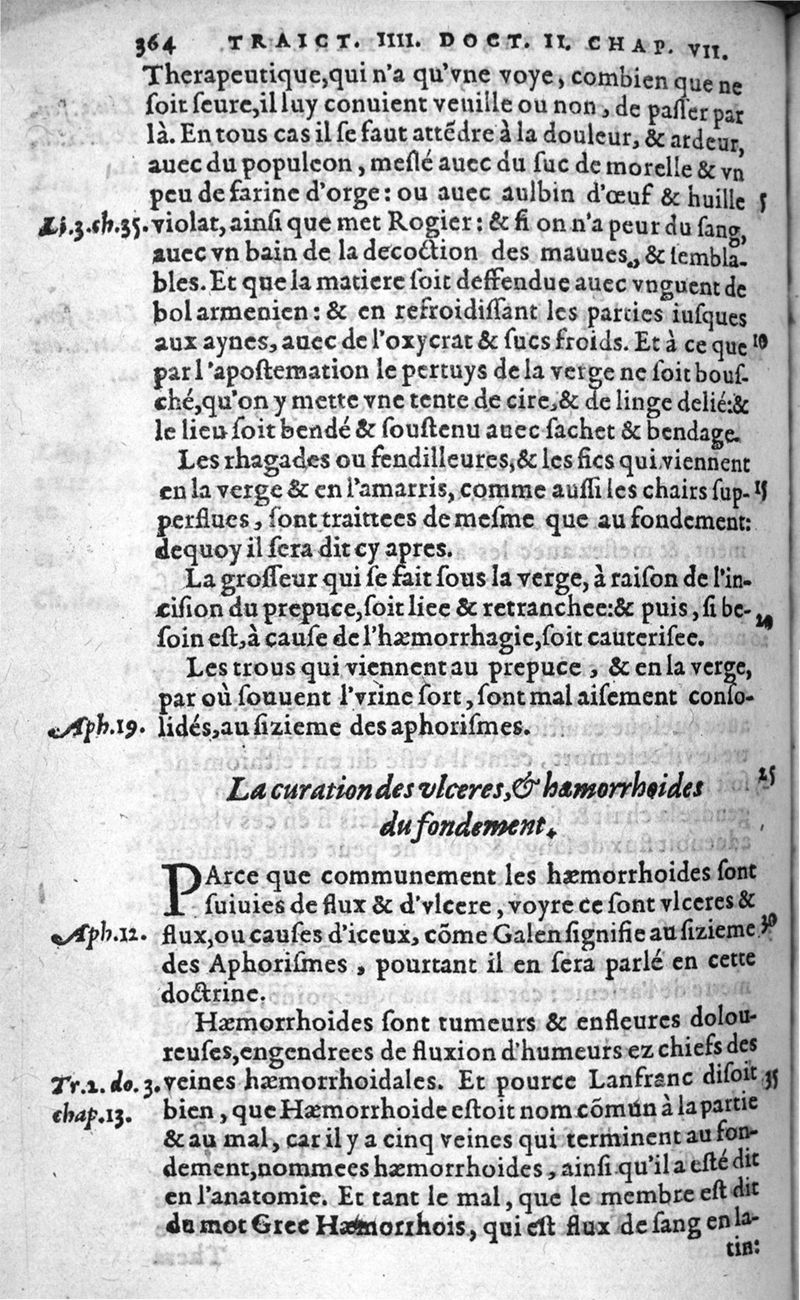 364 TRAICT. IIII. DOCT. II. CHAP. VII.
Therapeutique,qui n'a qu'vne voye, combien que ne
ſoit ſeure,il luy conuient veuille ou non, de paſſer par
là. En tous cas il ſe faut attẽdre à la douleur, & ardeur,
auec du populeon, meſlé auec du ſuc de morelle & vn
peu de farine d'orge: ou auec aulbin d'œuf & huille 5
Li.3.ch.35. violat, ainſi que met Rogier: & ſi on n'a peur du ſang,
auec vn bain de la decoction des mauues, & ſembla-
bles. Et que la matiere ſoit deffendue auec vnguent de
bol armenien: & en refroidiſſant les parties iuſques
aux aynes, auec de l'oxycrat & ſucs froids. Et à ce que 10
par l'apoſtemation le pertuys de la verge ne ſoit bouſ-
ché,qu'on y mette vne tente de cire,& de linge delié:&
le lieu ſoit bendé & ſouſtenu auec ſachet & bendage.
Les rhagades ou fendilleures,& les fics qui viennent
en la verge & en l'amarris, comme auſſi les chairs ſup- 15
perflues, ſont traittees de meſme que au fondement:
dequoy il ſera dit cy apres.
La groſſeur qui ſe fait ſous la verge, à raiſon de l'in-
ciſion du prepuce,ſoit liee & retranchee:& puis, ſi be- 20
ſoin eſt,à cauſe de l'hæmorrhagie,ſoit cauteriſee.
Les trous qui viennent au prepuce, & en la verge,
par où ſouuent l'vrine ſort, ſont mal aiſement conſo-
Aph.19. lidés,au ſizieme des aphoriſmes.
La curation des vlceres,& hæmorrhoides 25
du fondement.
PArce que communement les hæmorrhoides ſont
ſuiuies de flux & d'vlcere, voyre ce ſont vlceres &
Aph.12. flux,ou cauſes d'iceux, cõme Galen ſignifie au ſizieme 30
des Aphoriſmes, pourtant il en ſera parlé en cette
doctrine.
Hæmorrhoides ſont tumeurs & enfleures dolou-
reuſes,engendrees de fluxion d'humeurs ez chiefs des
Tr.2.do.3. veines hæmorrhoidales. Et pource Lanfranc diſoit 35
chap.13. bien, que Hæmorrhoide eſtoit nom cõmun à la partie
& au mal, car il y a cinq veines qui terminent au fon-
dement,nommees hæmorrhoides, ainſi qu'il a eſté dit
en l'anatomie. Et tant le mal, que le membre eſt dit
du mot Grec Hæmorrhois, qui eſt flux de ſang en la-
tin: